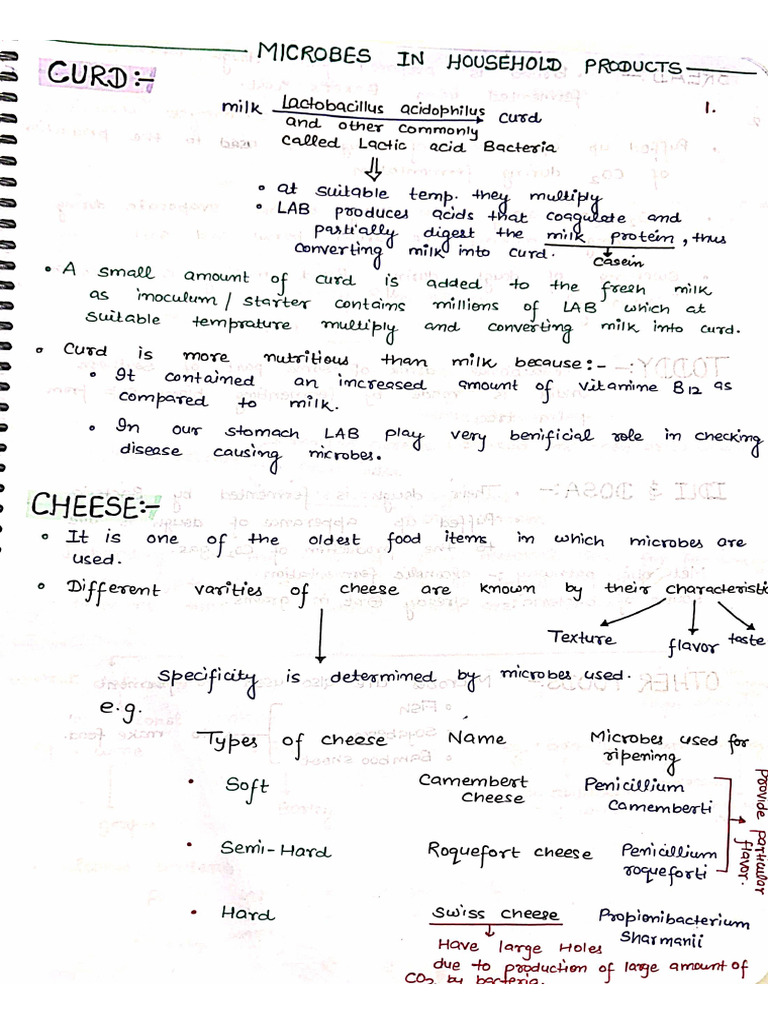 MICROBES IN HOUSEHOLD PRODUCTS
CURD:-
1.
milk Lactobacillus acidophilus curd
and other commonly
called Lactic acid Bacteria
• at suitable temp. they multiply
• LAB produces acids that coagulate and
partially digest the milk protein, thus
converting milk into curd. casein
• A small amount of curd is added to the fresh milk
as inoculum/starter contains millions of LAB which at
suitable temprature multiply and converting milk into curd.
• Curd is more nutritious than milk because:-
• It contained an increased amount of vitamine B12 as
compared to milk.
• In our stomach LAB play very benificial role in checking
disease causing microbes.
CHEESE:-
• It is one of the oldest food items in which microbes are
used.
• Different varities of cheese are known by their characteristic
Texture flavor taste
specificity is determined by microbes used.
e.g.
Types of cheese Name Microbes used for
ripening
• Soft Camembert Penicillium
cheese camemberti
• Semi-Hard Roquefort cheese Penicillium
roqueforti
Provide particular
flavor.
• Hard Swiss cheese Propionibacterium
Sharmanii
Have large Holes
due to production of large amount of
CO2 by bacteria.